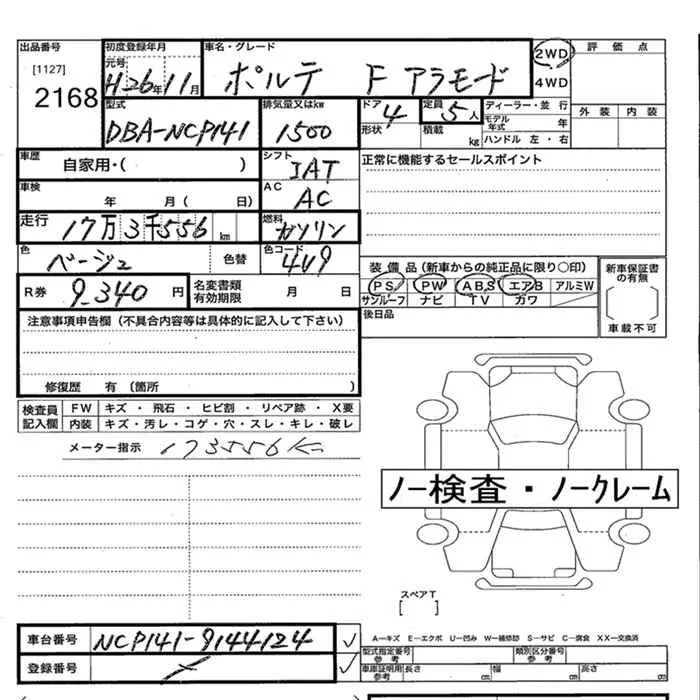 出品番号 初度登録年月 車名・グレード 2WD 評価点
[1127] 元号
2168 H26年11月 ポルテ F アラモード 4WD
外装 内装
型式 排気量又はkw ドア 4 定員 5人 ディーラー・並行
DBA-NCP141 1500 形状 積載 kg モデル年式 年
ハンドル 左・右
車歴 自家用・( ) シフト IAT 正常に機能するセールスポイント
車検 年 月( 日) AC AC
走行 17万3千556km 燃料 ガソリン
色 ベージュ 色替 色コード 4V9
装備品(新車からの純正品に限り○印) 新車保証書の有無
R券 9,340円 名変書類有効期限 月 日 PS PW ABS エアB アルミW
サンルーフ ナビ TV カワ
[ ]
注意事項申告欄(不具合内容等は具体的に記入して下さい) 後日品 車載不可
修復歴 有(箇所 )
検査員記入欄 FW キズ・飛石・ヒビ割・リペア跡・X要
内装 キズ・汚レ・コゲ・穴・スレ・キレ・破レ
メーター指示 173556K
ノー検査・ノークレーム
スペアT
[ ]
車台番号 NCP141-9144124 ✓
A―キズ E―エクボ U―凹み W―補修跡 S―サビ C―腐食 XX―交換済
登録番号 ✓
型式指定番号 参考 類別区分番号 参考
車庫証明用 参考 長さ cm 幅 cm 高さ cm